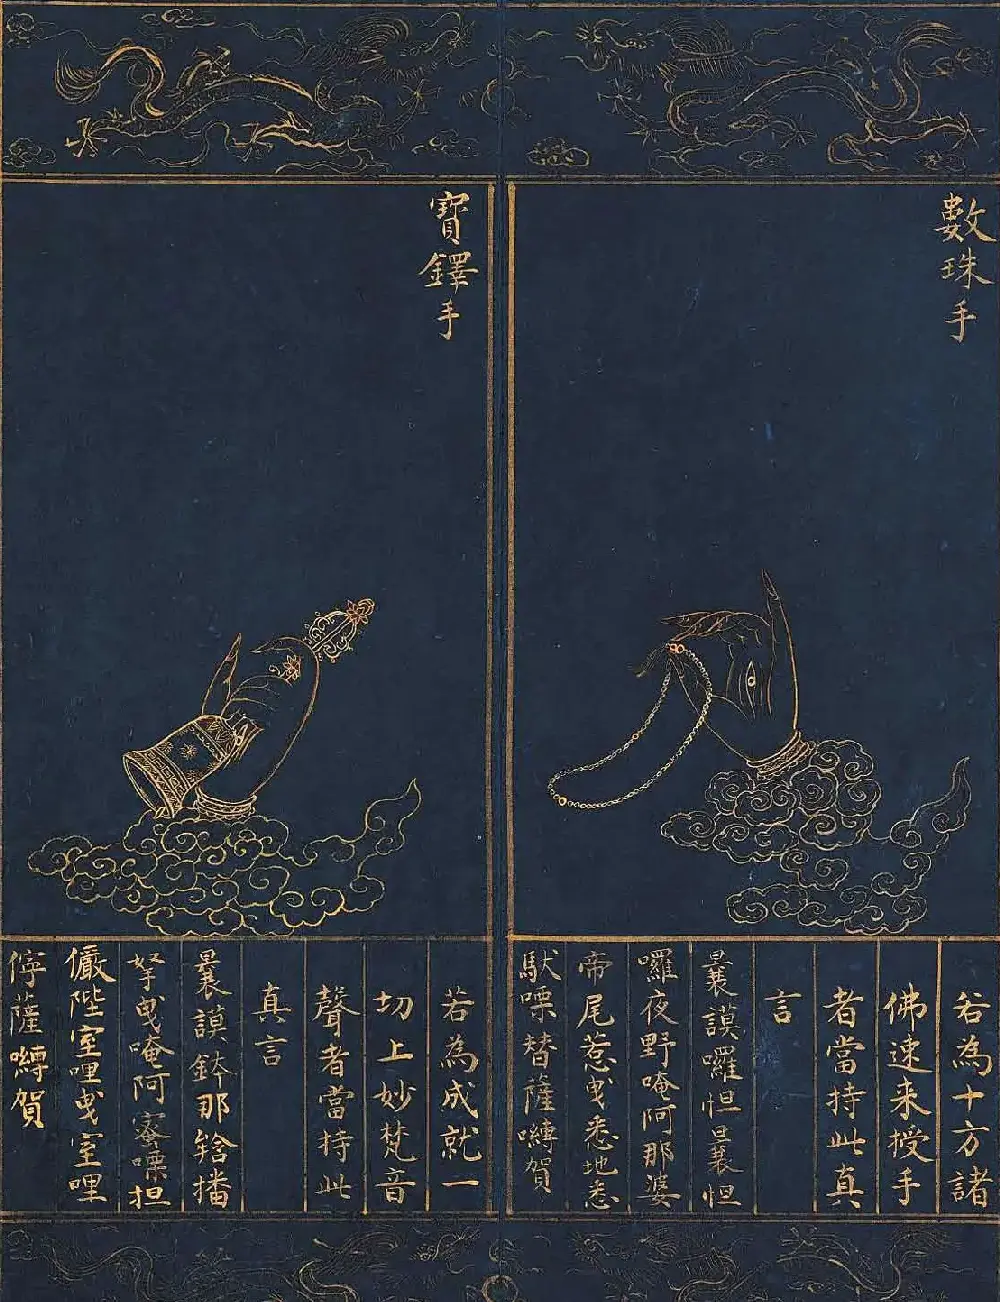 數珠手
若為十方諸
佛速来授手
者當持此真
言
曩謨囉怛曩怛
囉夜野唵阿那婆
帝尾惹曳悉地悉
馱㗚替薩嚩賀
寶鐸手
若為成就一
切上妙梵音
聲者當持此
真言
曩謨鉢那𤚥播
拏曳唵阿蜜㗚担
儼陛室哩曳室哩
𤙖薩嚩賀